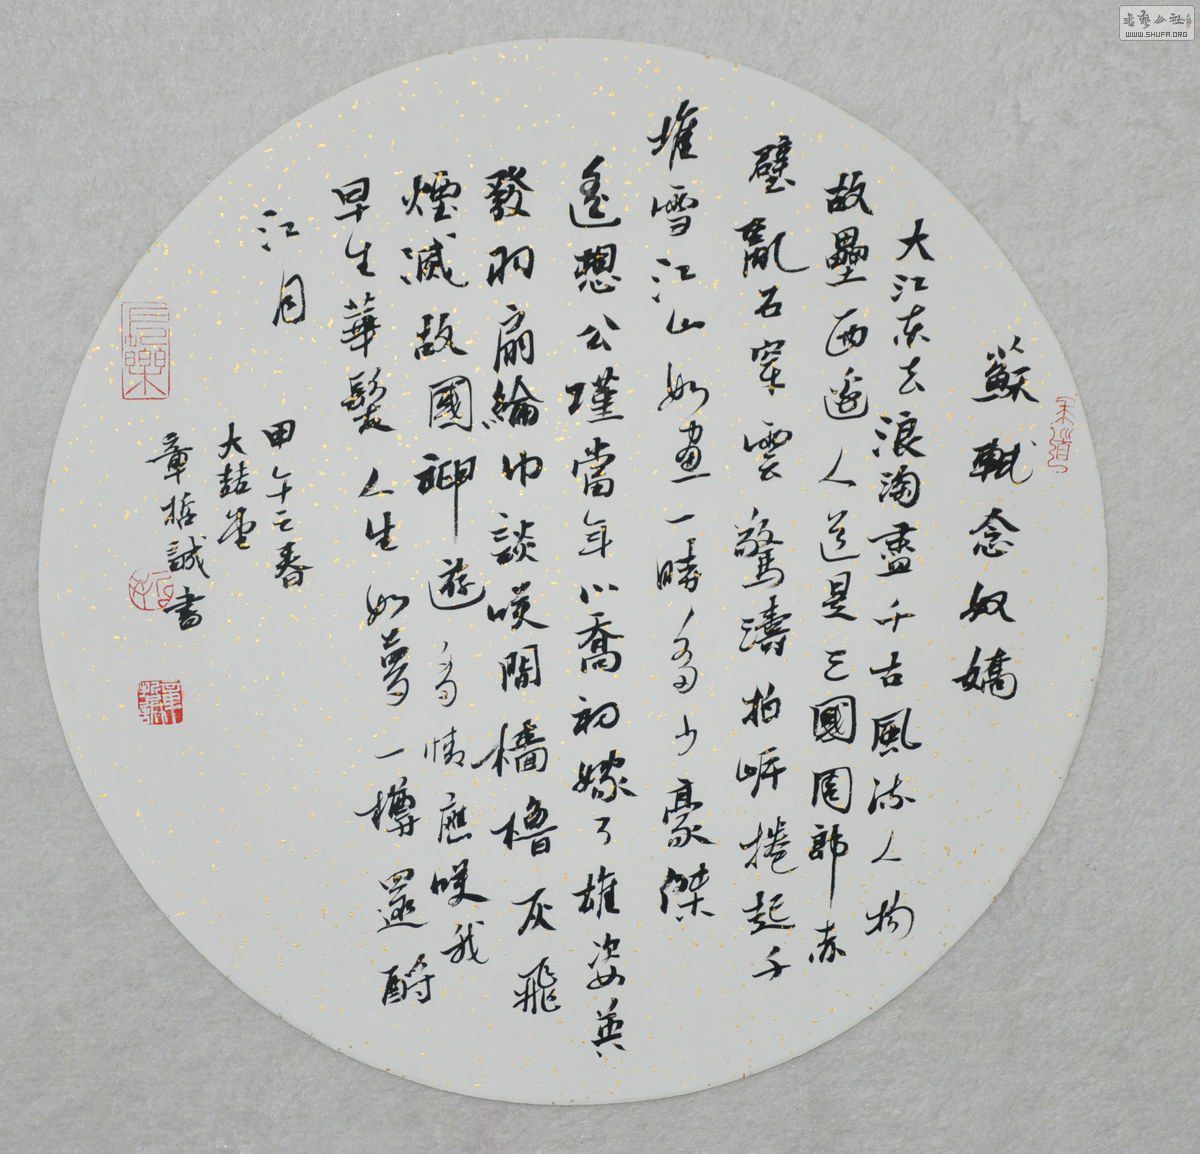 蘇軾念奴嬌
大江東去浪淘盡千古風流人物
故壘西邊人道是三國周郎赤
壁亂石穿雲驚濤拍岸捲起千
堆雪江山如畫一時多少豪傑
遙想公瑾當年小喬初嫁了雄姿英
發羽扇綸巾談咲間檣櫓灰飛
煙滅故國神遊多情應咲我
早生華髮人生如夢一樽還酹
江月
甲午之春
大喆堂
章哲誠書
長樂
書藝公社
WWW.SHUFA.ORG